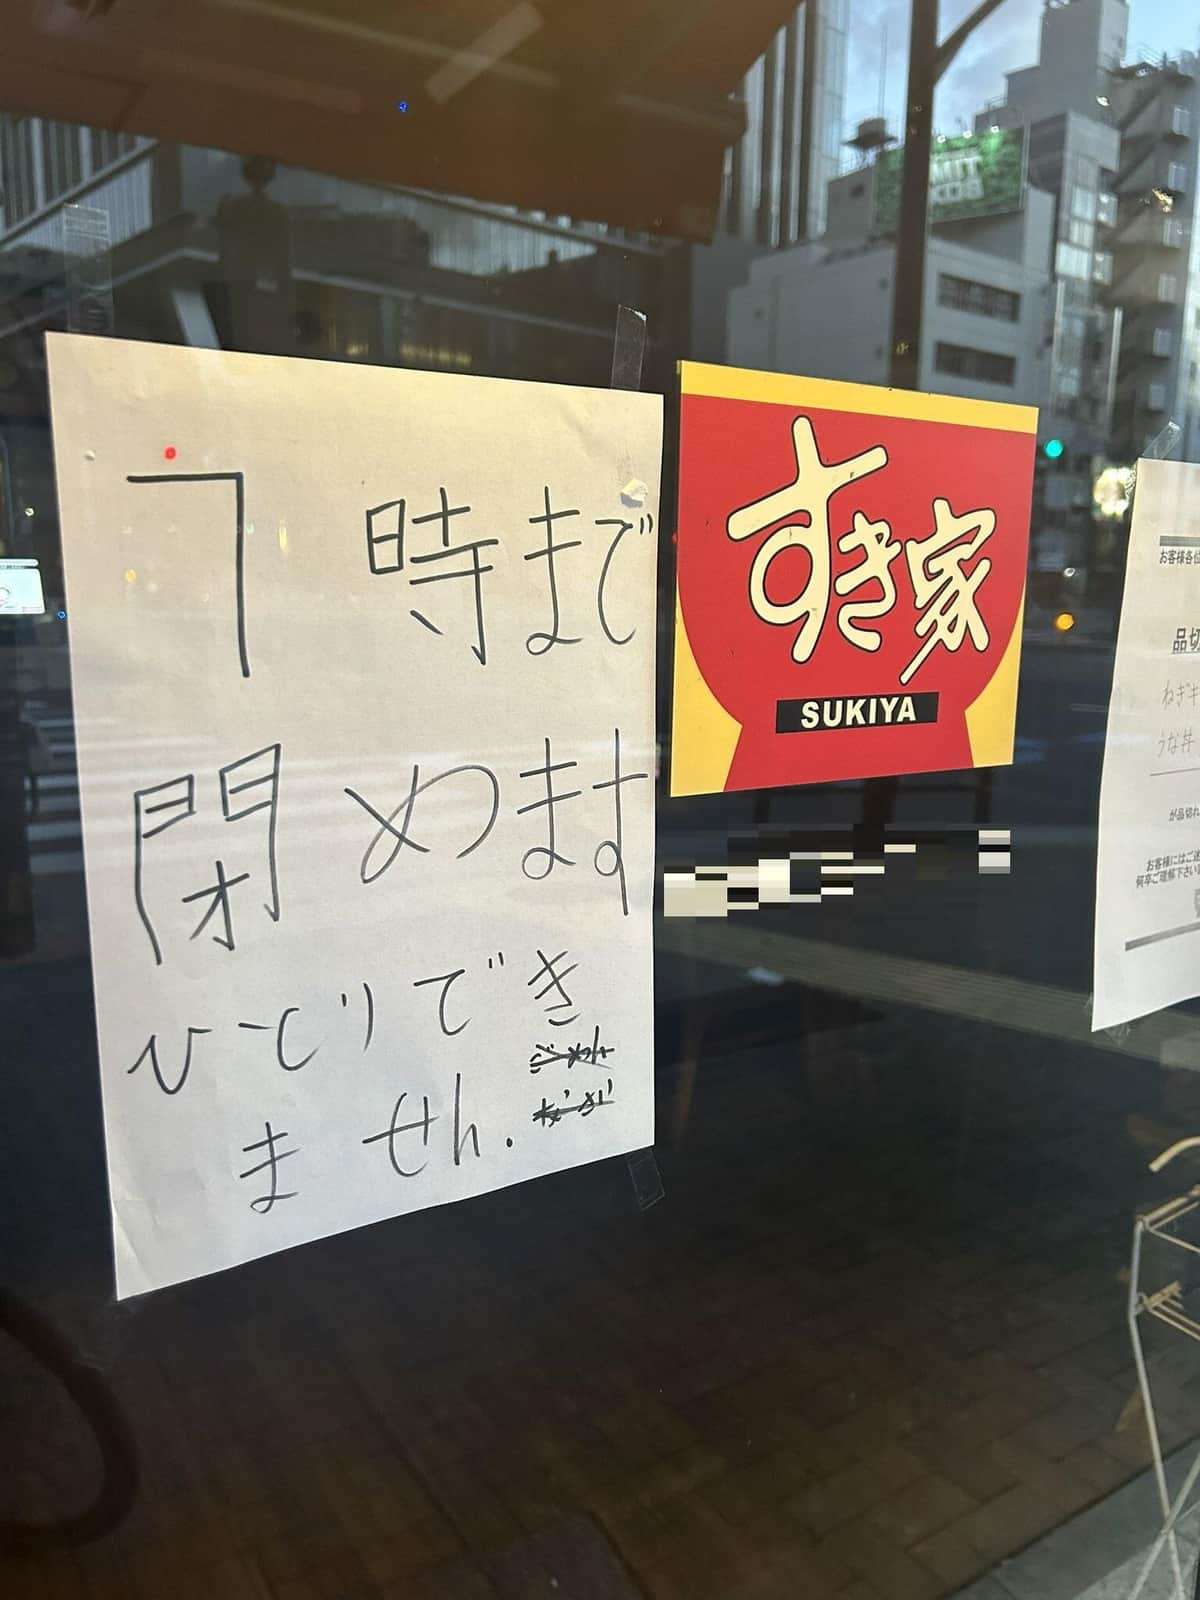 7 時まで
閉めます
ひとりでき
ません.
ごめん
なさい
すき家
SUKIYA
お客様各位
品切
ねぎキ
うな丼
が品切れ
お客様にはご迷
何卒ご理解下さい